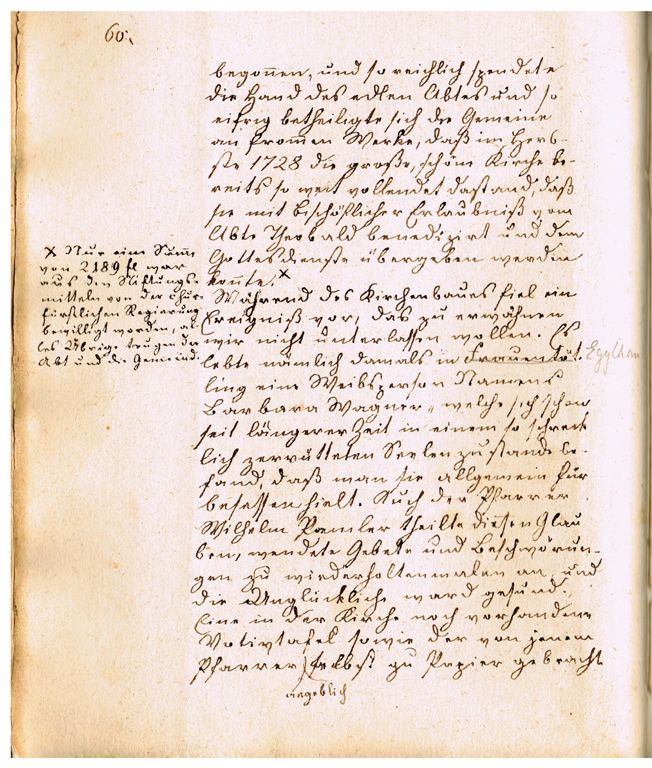 60.
begonnen, und so reichlich spendete
die Hand des edlen Abtes und so
eifrig betheiligte sich die Gemeine
an frommen Werke, daß im Herb-
ste 1728 die große, schöne Kirche be-
reits so weit vollendet dastand, daß
sie mit bischöflicher Erlaubniß vom
Abte Theobald benedizirt und dem
Gottesdienste übergeben werden
konnte. x
x Nur eine Summe
von 2189 fl war
aus den Stiftungs-
mitteln von der chur-
fürstlichen Regierung
bewilligt worden, al-
les Übrige trugen der
Abt und die Gemeind.
Während des Kirchenbaues fiel ein
Ereigniß vor, das zu erwähnen
wir nicht unterlassen wollen. Es
lebte nämlich damals in Frauensat-
ling eine Weibsperson Namens
Barbara Wagner, welche sich schon
seit längerer Zeit in einem so schreck
lich zerrütteten Seelenzustande be-
fand, daß man sie allgemein für
besessen hielt. Auch der Pfarrer
Wilhelm Pamler theilte diesen Glau
ben, wendete Gebete und Beschwörun-
gen zu wiederholtenmalen an, und
die Unglückliche ward gesund.
Eine in der Kirche noch vorhandene
Votivtafel sowie der von jenem
Pfarrer selbst zu Papier gebracht
angeblich